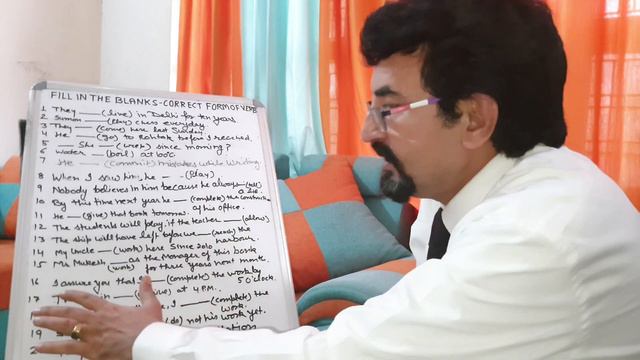 FILL IN THE BLANKS-CORRECT FORM OF VERB
1 They —— (live) in Delhi for ten years
2 Simon —— (play) chess everyday
3 They —— (come) here last Sunday
4 He —— (go) to Rohtak before I reached.
5 — She —— (weep) since morning?
6 Water —— (boil) at 100c
7 He —— (commit) mistakes while writing.
8 When I saw him, he — - (Play)
9 Nobody believes in him because he always — (tell) a lie.
10 By this time next year he —— (complete) the construction of his office.
11 He — (give) that book tomorrow.
12 The students will play, if the teacher —— (allow)
13 The ship will have left before we —— (reach) the harbour.
14 My Uncle —— (work) here since 2010
15 Mr Mukesh —— as the Manager of this bank (work) for three years next month.
16 I assure you that I —— (complete) the work by 5 O'clock.
17 at 4 P.M.
I —— (complete) the work.
(do) not his work yet.
19